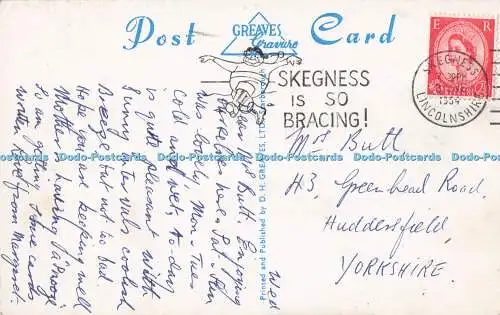 Post Card
GREAVES
Gravure
SKEGNESS
IS SO
BRACING!
SKEGNESS
1954
LINCOLNSHIRE
E R
Printed and Published by D. H. GREAVES, LTD., Scarborough
Dodo-Postcards Dodo-Postcards Dodo-Postcards Dodo-Postcards Dodo-Postcards
Wed
Dear Mrs Butt. Enjoying
ourselves here. Sat - Sun
was lovely, Mon - Tues
cold and wet, to-day
is quite pleasant with
sunny intervals coolish
Breeze but not so bad.
Hope you are keeping well
Mother having a snooze
so am getting some cards
written. Love from Margaret.
Mrs Butt
43, Greenhead Road,
Huddersfield,
YORKSHIRE.